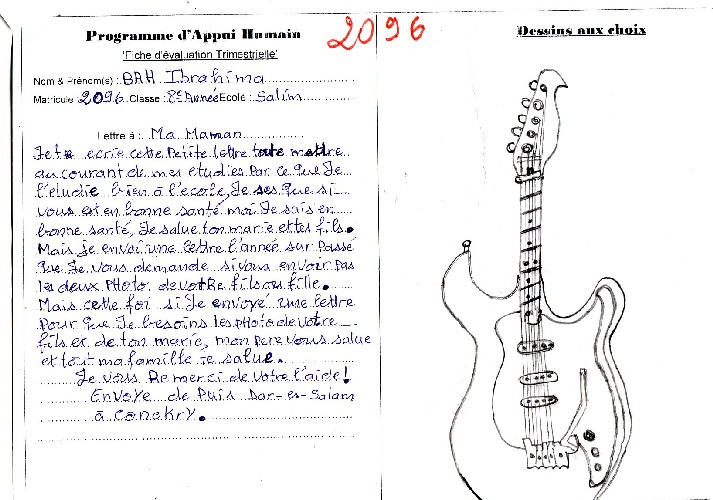 Programme d'Appui Humain
2096
Dessins aux choix
'Fiche d'évaluation Trimestrielle'
Nom & Prénom(s) : BAH Ibrahima
Matricule 2096 Classe : 8e Année Ecole : Salim
Lettre à : Ma Maman
Je te ecrie cette Petite lettre toute mettre
au courant de mes etudies Par ce que Je
l'etudie bien à l'ecole, Je ses que si
vous est en bonne santé moi Je sais en
bonne santé, Je salue ton marie et tes fils.
Mais Je envoi une lettre l'année sur Passé
que Je vous demande si vous envoir pas
les deux Photo de votre fils ou fille.
Mais cette foi si Je envoyé une lettre
Pour que Je besoins les photo de votre
fils et de ton marie, mon pere vous salue
et tout ma famille te salue.
Je vous Remerci de votre l'aide!
Envoye de Puis Dar-es-Salam
à Conakry.